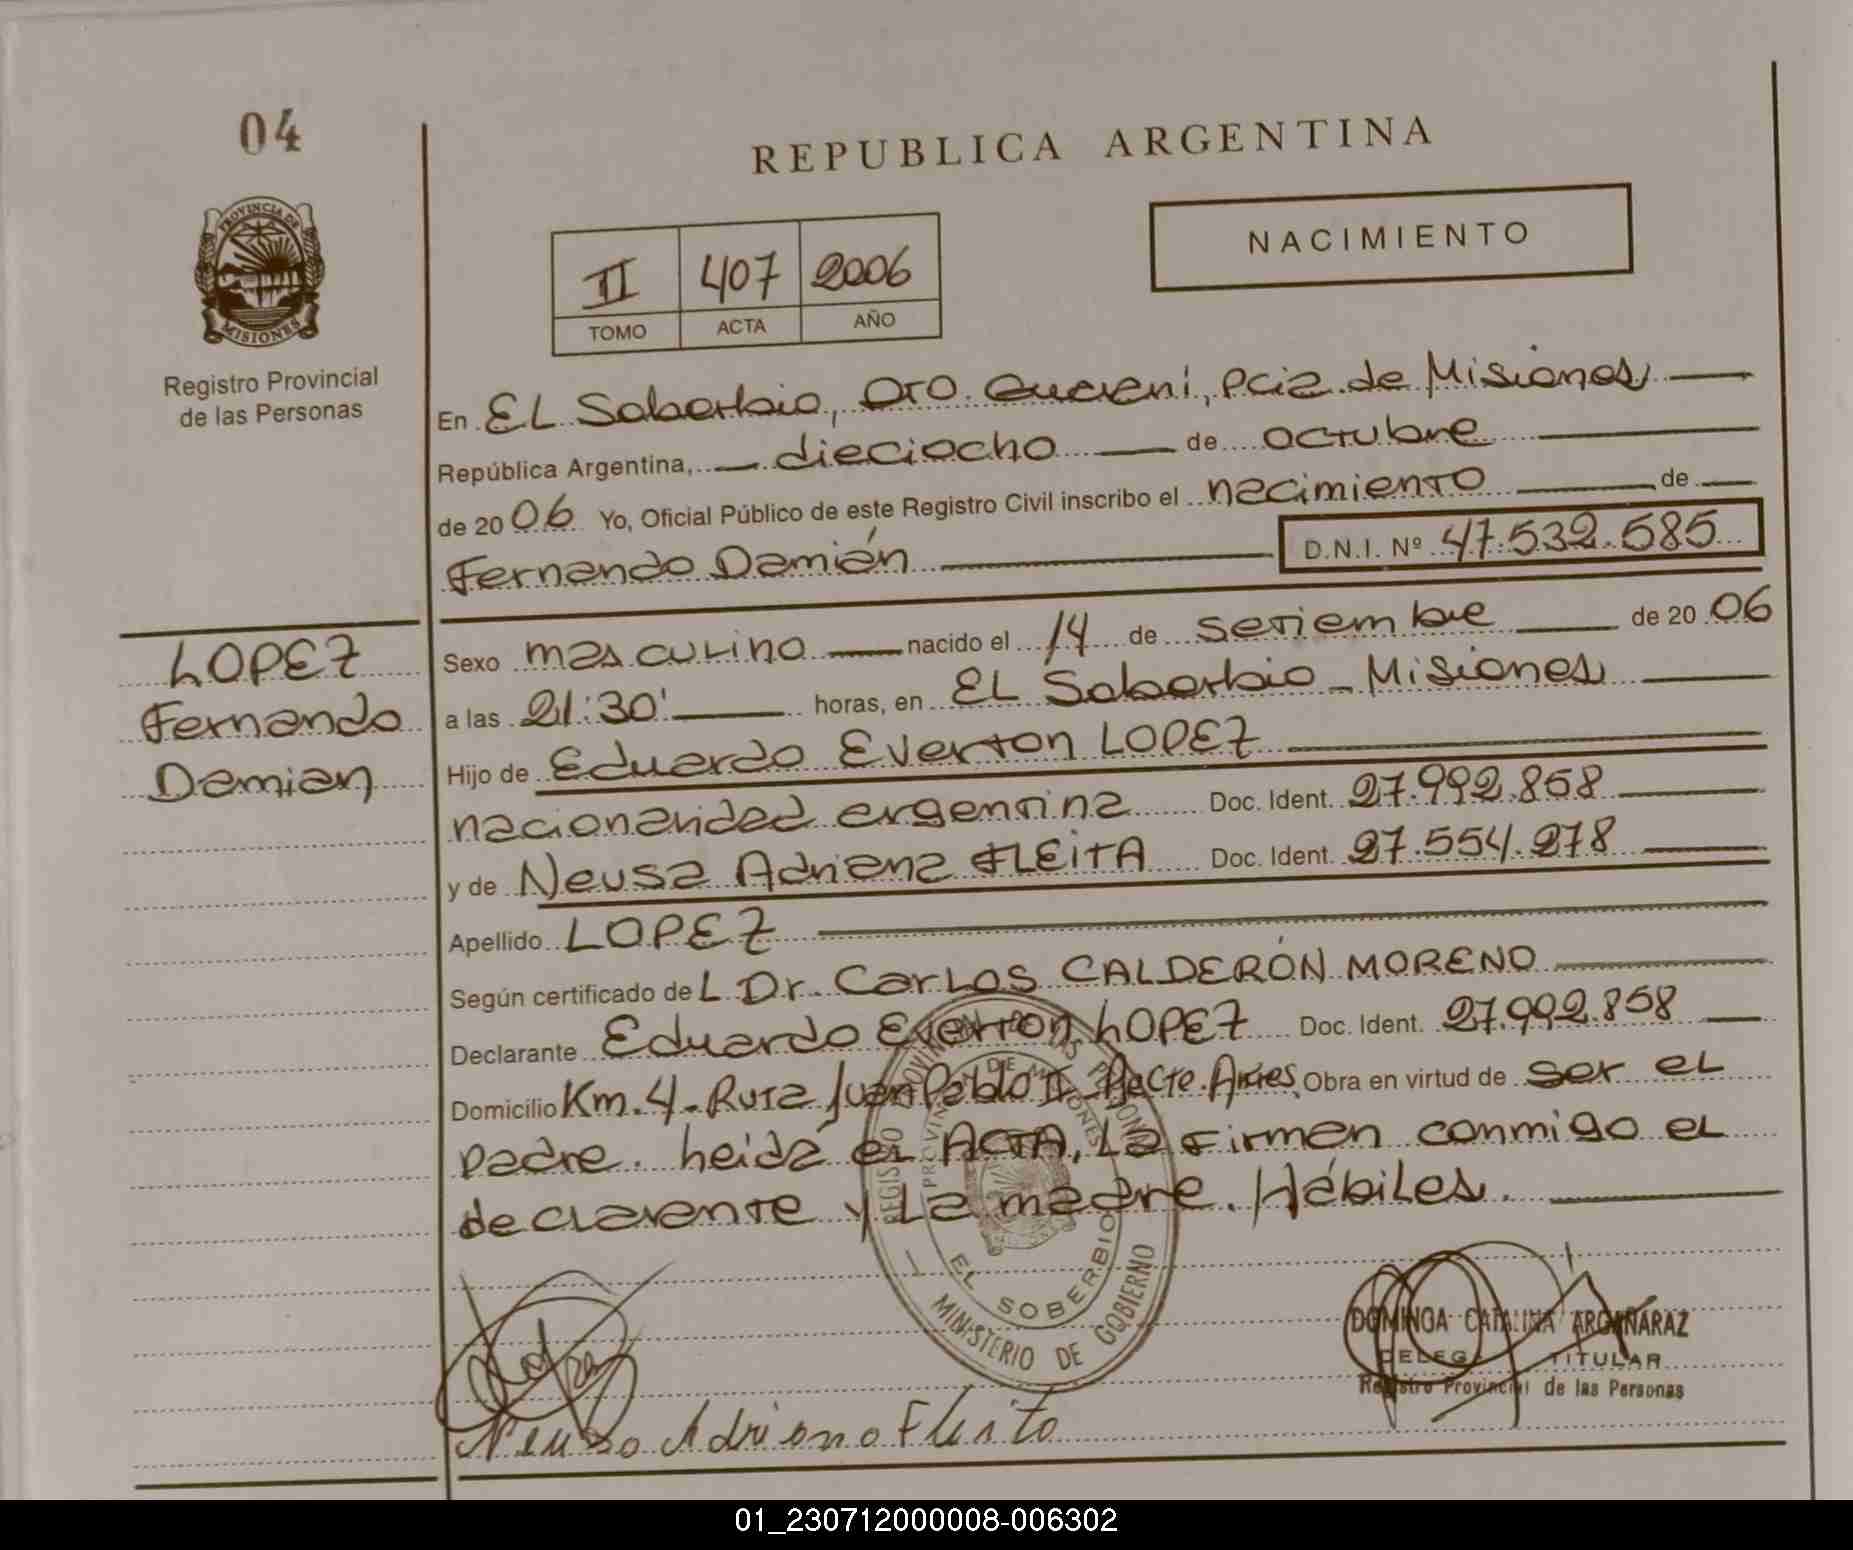 04
REPUBLICA ARGENTINA
PROVINCIA DE
MISIONES
Registro Provincial
de las Personas
NACIMIENTO
II 407 2006
TOMO ACTA AÑO
En EL Soberbio, DTO. Guaraní, Pcia de Misiones
República Argentina, dieciocho de octubre
de 2006 Yo, Oficial Público de este Registro Civil inscribo el nacimiento de
Fernando Damián D.N.I. Nº 47.532.585
LOPEZ
Fernando
Damian
Sexo masculino nacido el 14 de setiembre de 2006
a las 21:30' horas, en EL Soberbio - Misiones
Hijo de Eduardo Everton LOPEZ
nacionalidad argentina Doc. Ident. 27.992.858
y de Neusa Adriana FLEITA Doc. Ident. 27.554.278
Apellido LOPEZ
Según certificado deL Dr. Carlos CALDERÓN MORENO
Declarante Eduardo Everton LOPEZ Doc. Ident. 27.992.858
Domicilio Km. 4 - Ruta Juan Pablo II Obra en virtud de ser el
padre. Leída el ACTA, La firman conmigo el
declarante y La madre. Hábiles.
EL SOBERBIO
MINISTERIO DE GOBIERNO
DOMINGA CATALINA ARGAÑARAZ
TITULAR
Registro Provincial de las Personas
Neusa Adriana Fleita
01_230712000008-006302